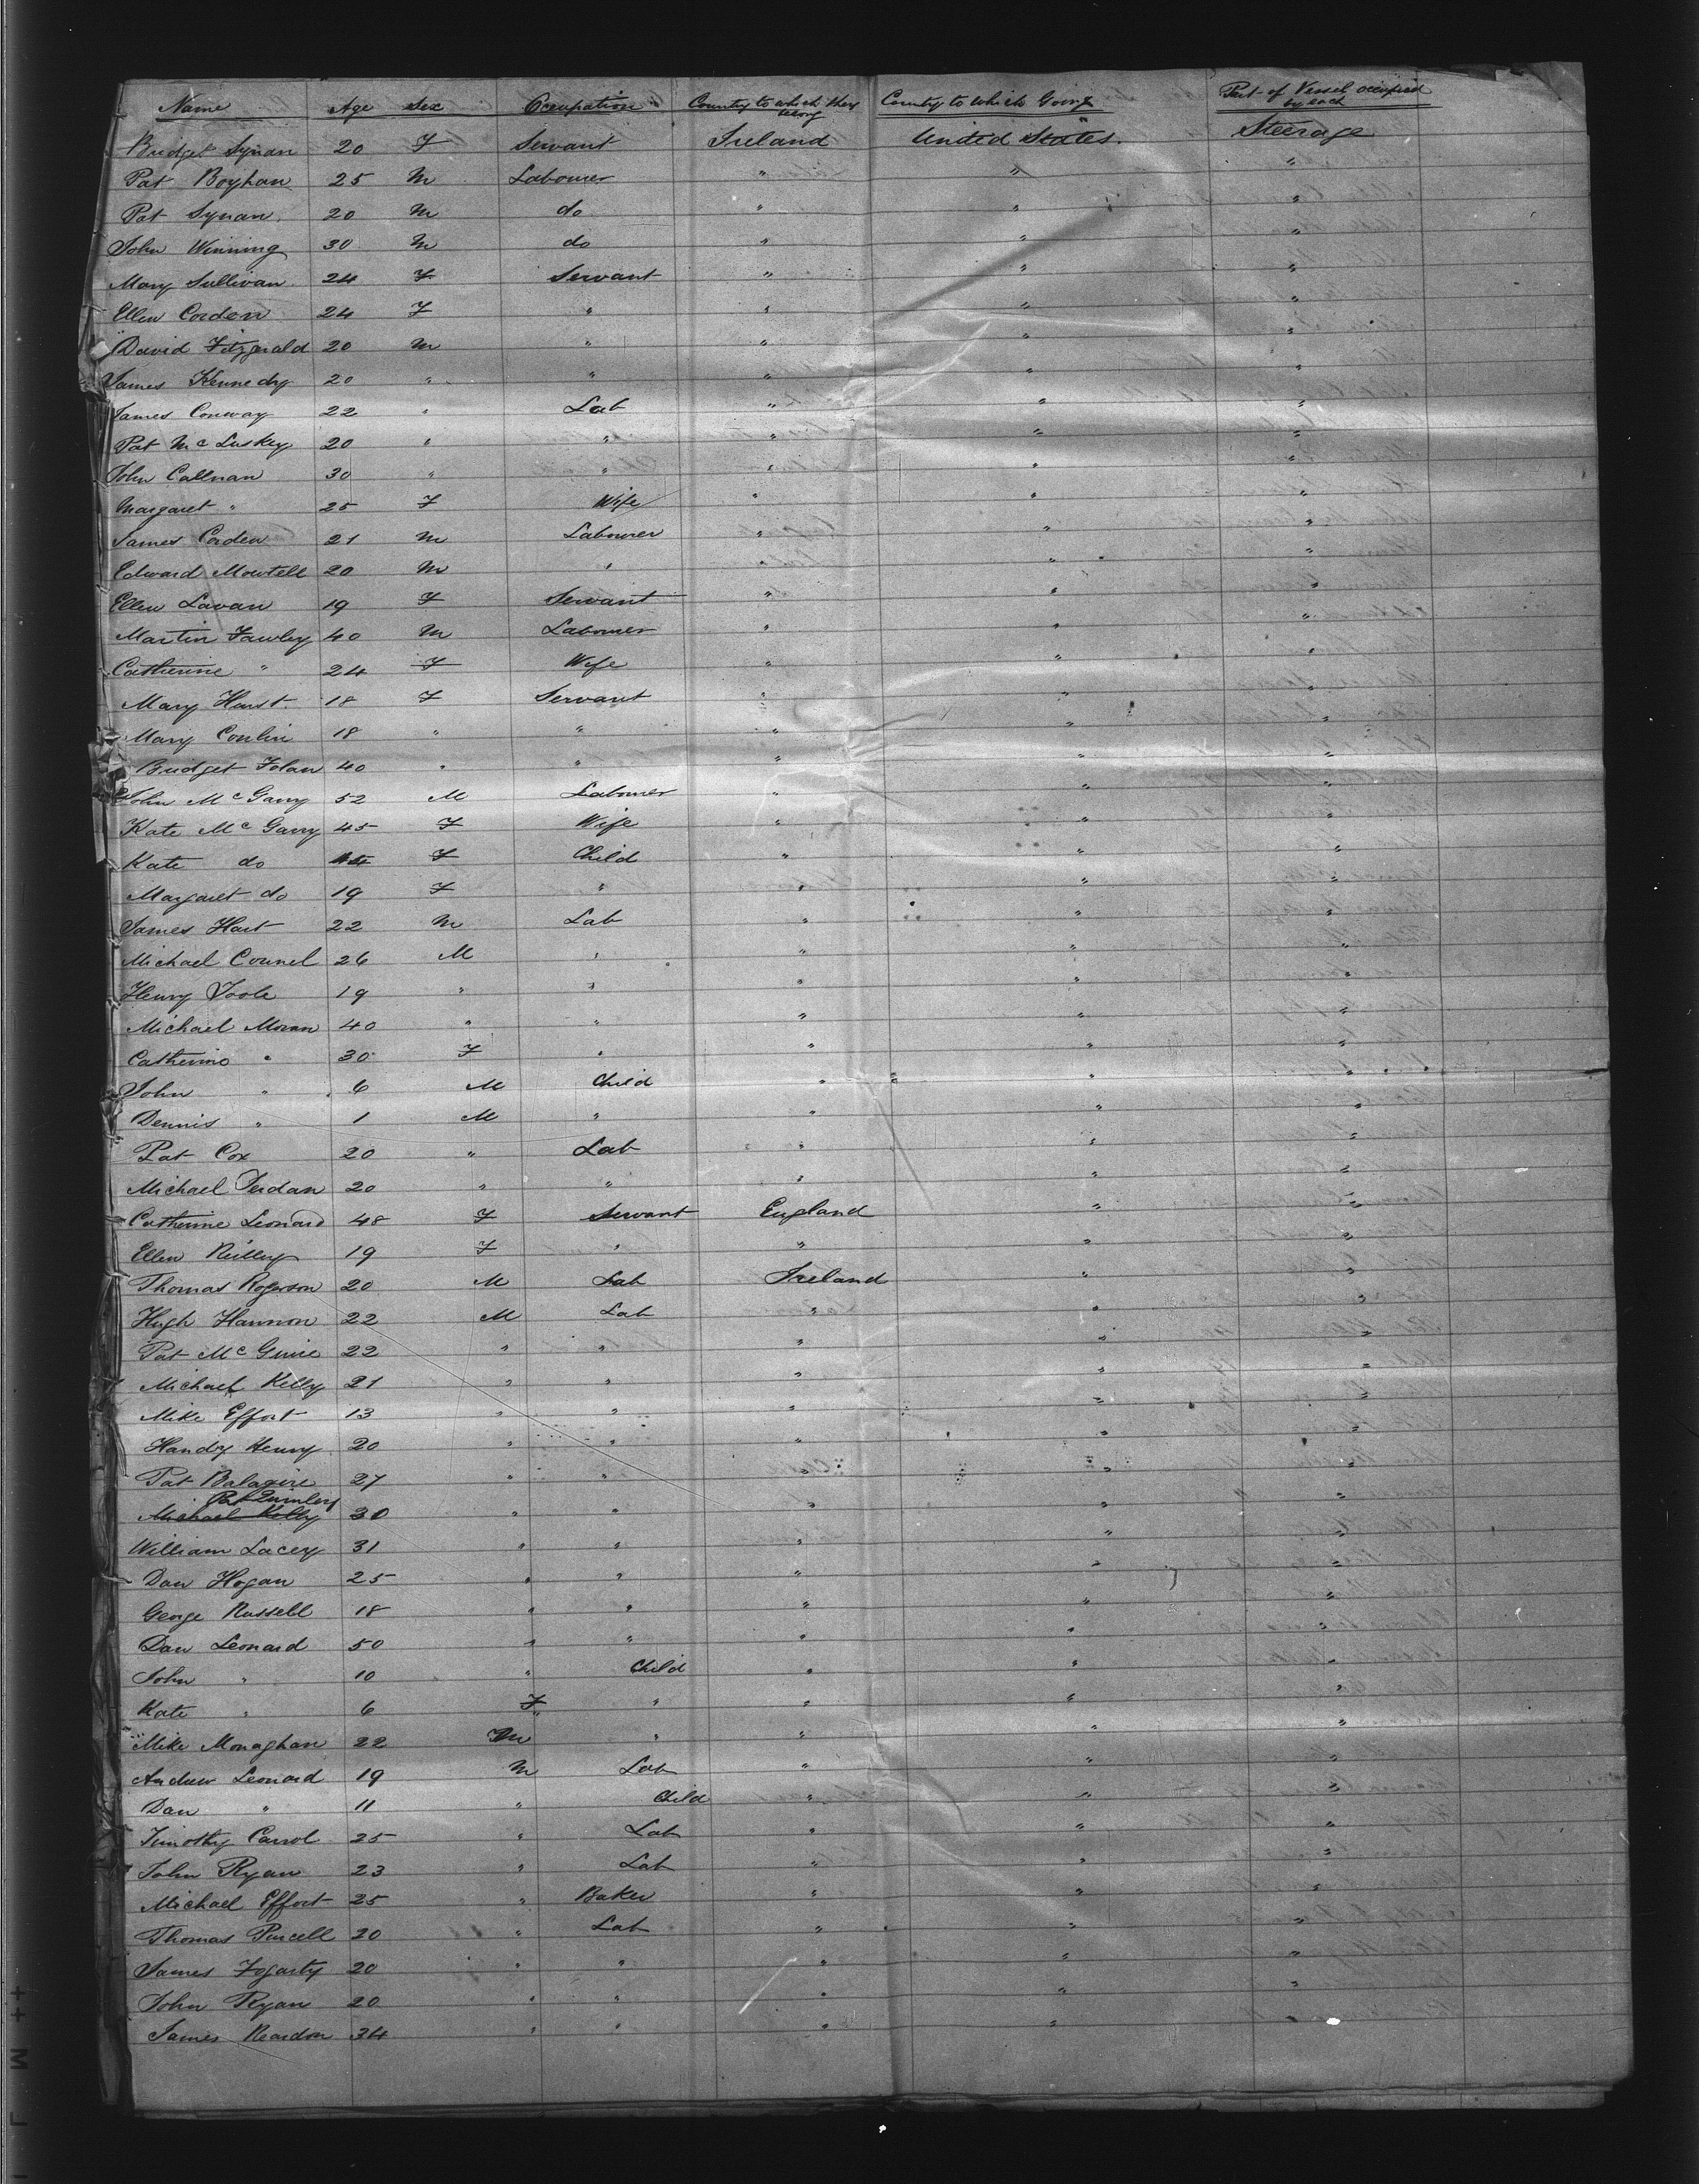 Name Age Sex Occupation Country to which they belong Country to which Going Part of Vessel occupied by each
Bridget Synan 20 F Servant Ireland United States. Steerage
Pat Boyhan 25 M Labourer " " "
Pat Synan 20 M do " " "
John Winning 30 M do " " "
Mary Sullivan 24 F Servant " " "
Ellen Corden 24 F " " " "
David Fitzgerald 20 M " " " "
James Kennedy 20 " " " " "
James Conway 22 " Lab " " "
Pat McLuskey 20 " " " " "
John Callnan 30 " " " " "
Margaret " 25 F Wife " " "
James Corden 21 M Labourer " " "
Edward Mowtell 20 M " " " "
Ellen Lavan 19 F Servant " " "
Martin Fawley 40 M Labourer " " "
Catherine " 24 F Wife " " "
Mary Hurst 18 F Servant " " "
Mary Conlin 18 " " " " "
Bridget Folan 40 " " " " "
John McGarry 52 M Labourer " " "
Kate McGarry 45 F Wife " " "
Kate do F Child " " "
Margaret do 19 F " " " "
James Hart 22 M Lab " " "
Michael Connel 26 M " " " "
Henry Toole 19 " " " " "
Michael Moran 40 " " " " "
Catherine " 30 F " " " "
John " 6 M Child " " "
Dennis " 1 M " " " "
Pat Cox 20 " Lab " " "
Michael 20 " " " " "
Catherine Leonard 48 F Servant England " "
Ellen Reilley 19 F " " " "
Thomas Rogerson 20 M Lab Ireland " "
Hugh Hannon 22 M Lab " " "
Pat 22 " " " " "
Michael Kelly 21 " " " " "
Mike Effort 13 " " " " "
Handy Henry 20 " " " " "
Pat Balagire 27 " " " " "
Pat
Michael Kelly 30 " " " " "
William Lacey 31 " " " " "
Dan Hogan 25 " " " " "
George Russell 18 " " " " "
Dan Leonard 50 " " " " "
John " 10 " Child " " "
Kate " 6 F " " " "
Mike Monaghan 22 M " " " "
Andrew Leonard 19 M Lab " " "
Dan " 11 " Child " " "
Timothy Carrol 25 " Lab " " "
John Ryan 23 " Lab " " "
Michael Effort 25 " Baker " " "
Thomas Purcell 20 " Lab " " "
James Fogarty 20 " " " " "
John Ryan 20 " " " " "
James Reardon 34 " " " " "